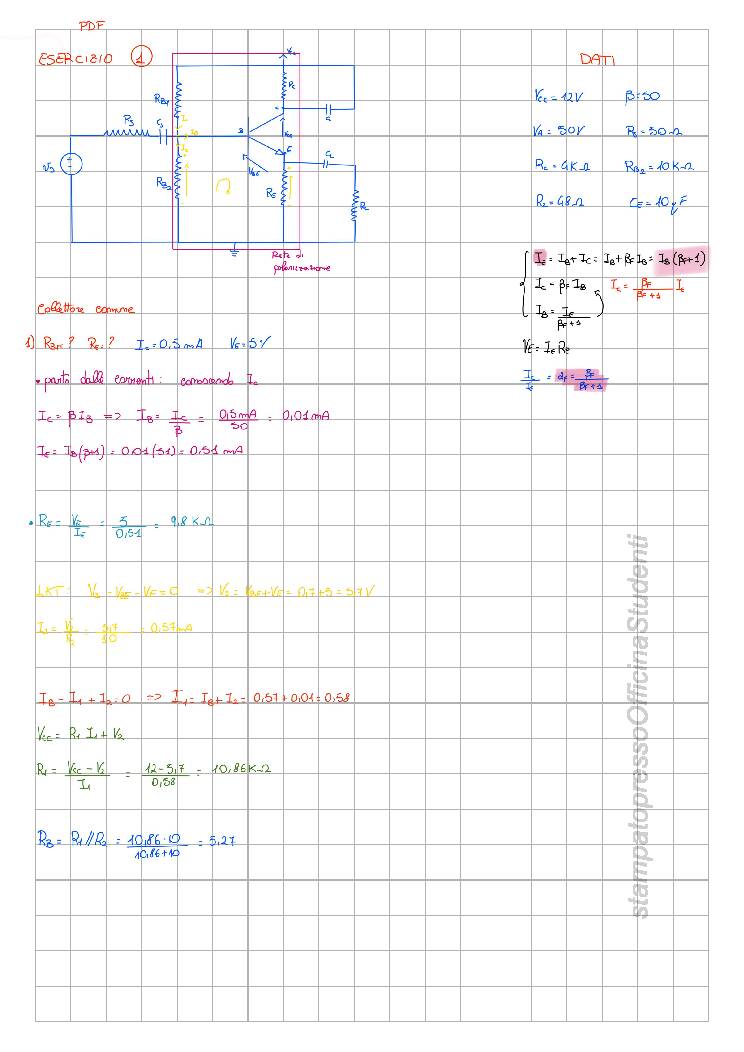 PDF
ESERCIZIO 1
DATI
Vcc = 12V β = 50
VA = 50V Rs = 50Ω
Rc = 4KΩ RB2 = 10KΩ
RL = 48Ω CE = 10 µF
RB1
Rc
Rs
Cs
B
E
VBE
RB2
RE
RL
Vs
Rete di
polarizzazione
IE = IB + IC = IB + βF IB = IB (βF+1)
IC = βF IB
IC = βF/(βF+1) IE
IB = IE/(βF+1)
VE = IE RE
IC/IE = αF = βF/(βF+1)
Collettore comune
1) RB1? RE? IC = 0,5 mA VE = 5V
• parto dalle correnti: conoscendo IC
IC = β IB => IB = IC/β = 0,5mA/50 = 0,01mA
IE = IB(β+1) = 0.01(51) = 0,51 mA
• RE = VE/IE = 5/0,51 = 9,8 KΩ
LKT: V2 - VBE - VE = 0 => V2 = VBE + VE = 0,7 + 5 = 5,7V
I2 = V2/R2 = 5,7/10 = 0,57mA
IB - I1 + I2 = 0 => I1 = IB + I2 = 0,57 + 0,01 = 0,58
Vcc = R1 I1 + V2
R1 = Vcc - V2/I1 = 12 - 5,7/0,58 = 10,86KΩ
RB = R1 // R2 = 10,86 · 10/10,86 + 10 = 5,27
stampatopressoOfficinaStudenti